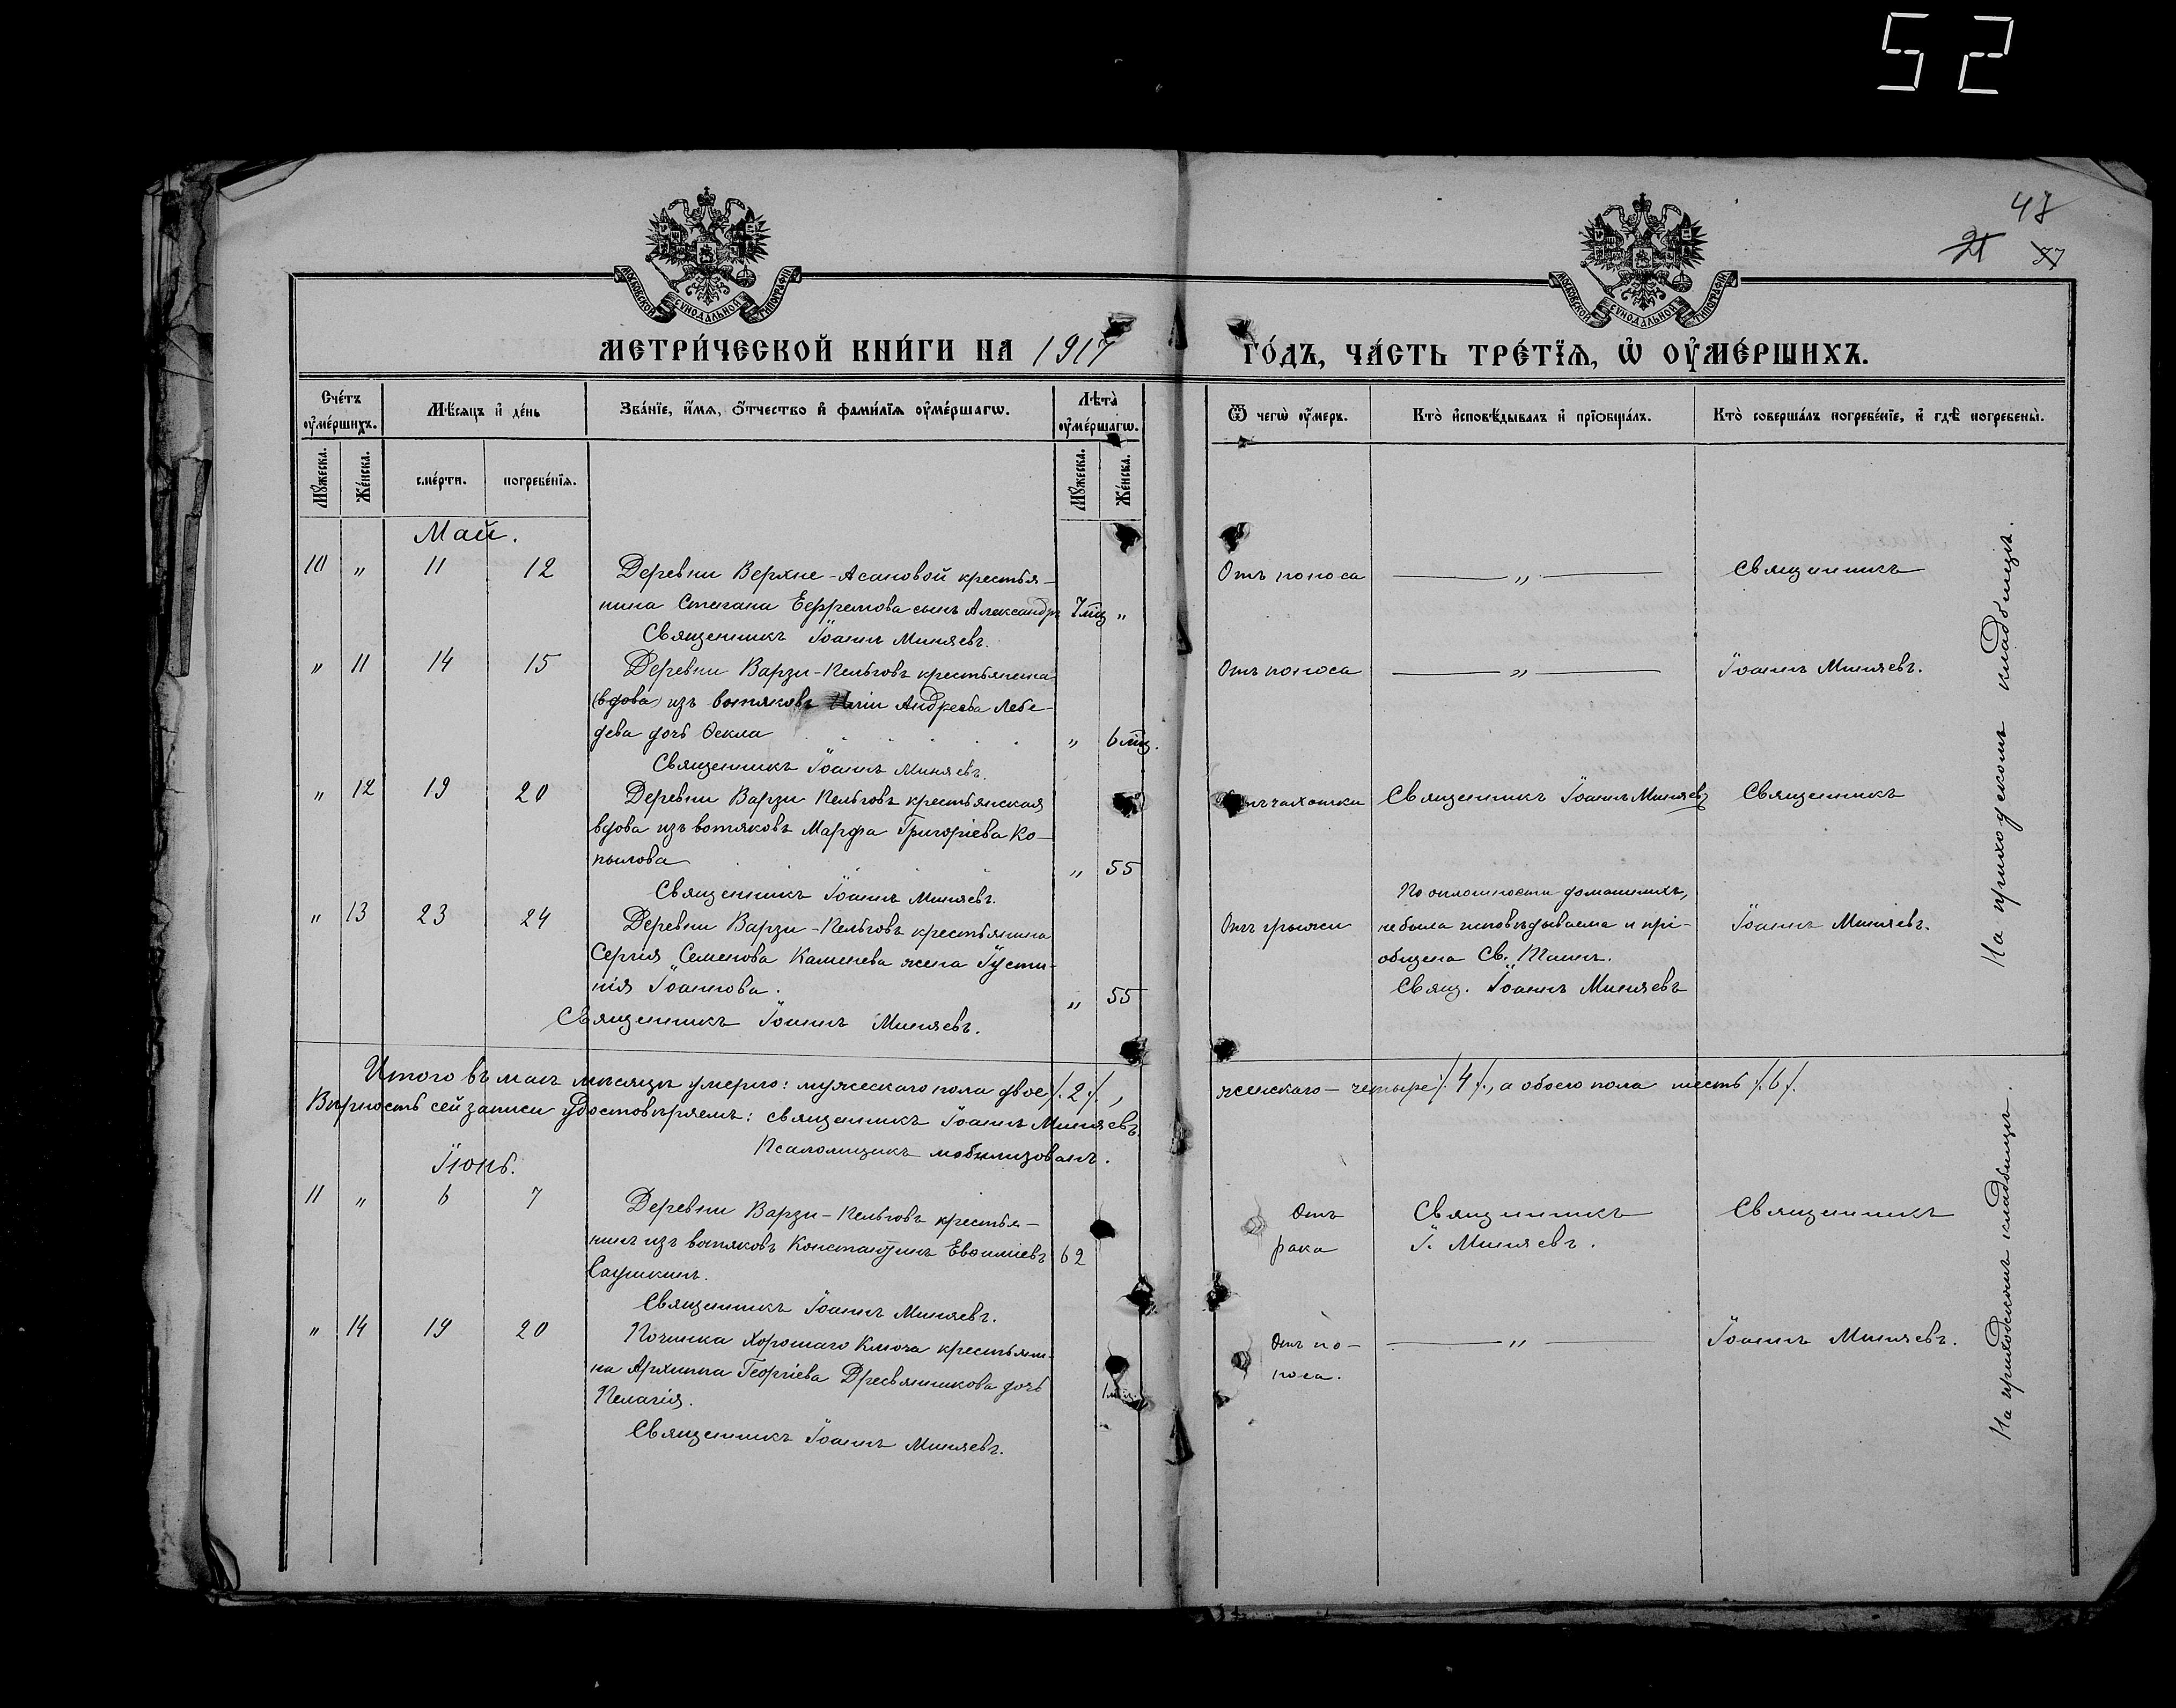 52
47
21 37
МОСКОВСКОЙ СѴНОДАЛЬНОЙ ТИПОГРАФІИ
МОСКОВСКОЙ СѴНОДАЛЬНОЙ ТИПОГРАФІИ
МЕТРИ́ЧЕСКОЙ КНИ́ГИ НА 1917 ГО́ДЪ, ЧА́СТЬ ТРЕ́ТЇѦ, Ѡ҆ ОУ҆МЕ́РШИХЪ.
Сче́тъ оу҆ме́ршихъ.
Мѣ́сяцъ и҆ де́нь
Зва́нїе, и҆́мя, ѻ҆́тчество и҆ фами́лїя оу҆ме́ршагѡ.
Лѣ́та оу҆ме́ршагѡ.
Ѿ чегѡ̀ оу҆́меръ.
Кто̀ и҆сповѣ́дывалъ и҆ прїѻбща́лъ.
Кто̀ соверша́лъ погребе́нїе, и҆ гдѣ̀ погребены̀.
Мꙋ́жеска.
Же́нска.
сме́рти.
погребе́нїя.
Мꙋ́жеска.
Же́нска.
Май.
10 " 11 12 Деревни Верхне-Асановой крестья-
нина Стефана Ефремова сынъ Александръ 7 мц "
Священникъ Іоаннъ Миняевъ.
Отъ поноса — " — Священникъ
" 11 14 15 Деревни Варзи-Пельговъ крестьянина
(вдова) изъ вотяковъ Иліи Андреева Лебе-
дева дочь Ѳекла " 6 мц.
Священникъ Іоаннъ Миняевъ.
Отъ поноса — " — Іоаннъ Миняевъ.
" 12 19 20 Деревни Варзи Пельговъ крестьянская
вдова изъ вотяковъ Марфа Григоріева Ко-
пылова " 55
Священникъ Іоаннъ Миняевъ.
Отъ чахотки Священникъ Іоаннъ Миняевъ Священникъ
" 13 23 24 Деревни Варзи-Пельговъ крестьянина
Сергія Семенова Каменева жена Іусти-
нія Іоаннова. " 55
Священникъ Іоаннъ Миняевъ.
Отъ грыжи
По оплошности домашнихъ,
не была исповѣдываема и прі-
общена Св. Таинъ.
Свящ. Іоаннъ Миняевъ
Іоаннъ Миняевъ.
На приходскомъ кладбищѣ.
Итого въ маѣ мѣсяцѣ умерло: мужескаго пола двое /.2/., женскаго – четыре /.4/., а обоего пола шесть /.6/.
Вѣрность сей записи удостовѣряемъ: священникъ Іоаннъ Миняевъ.
Псаломщикъ мобилизованъ.
Іюнь.
11 " 6 7 Деревни Варзи-Пельговъ крестья-
нинъ изъ вотяковъ Константинъ Евѳиміевъ 62
Саушкинъ.
Священникъ Іоаннъ Миняевъ.
Отъ рака
Священникъ
І. Миняевъ.
Священникъ
" 14 19 20 Починка Хорошаго Ключа крестьяни-
на Архиппа Георгіева Дресвянникова дочь
Пелагія. 1 мц
Священникъ Іоаннъ Миняевъ.
Отъ по-
носа.
— " — Іоаннъ Миняевъ.
На приходскомъ кладбищѣ.